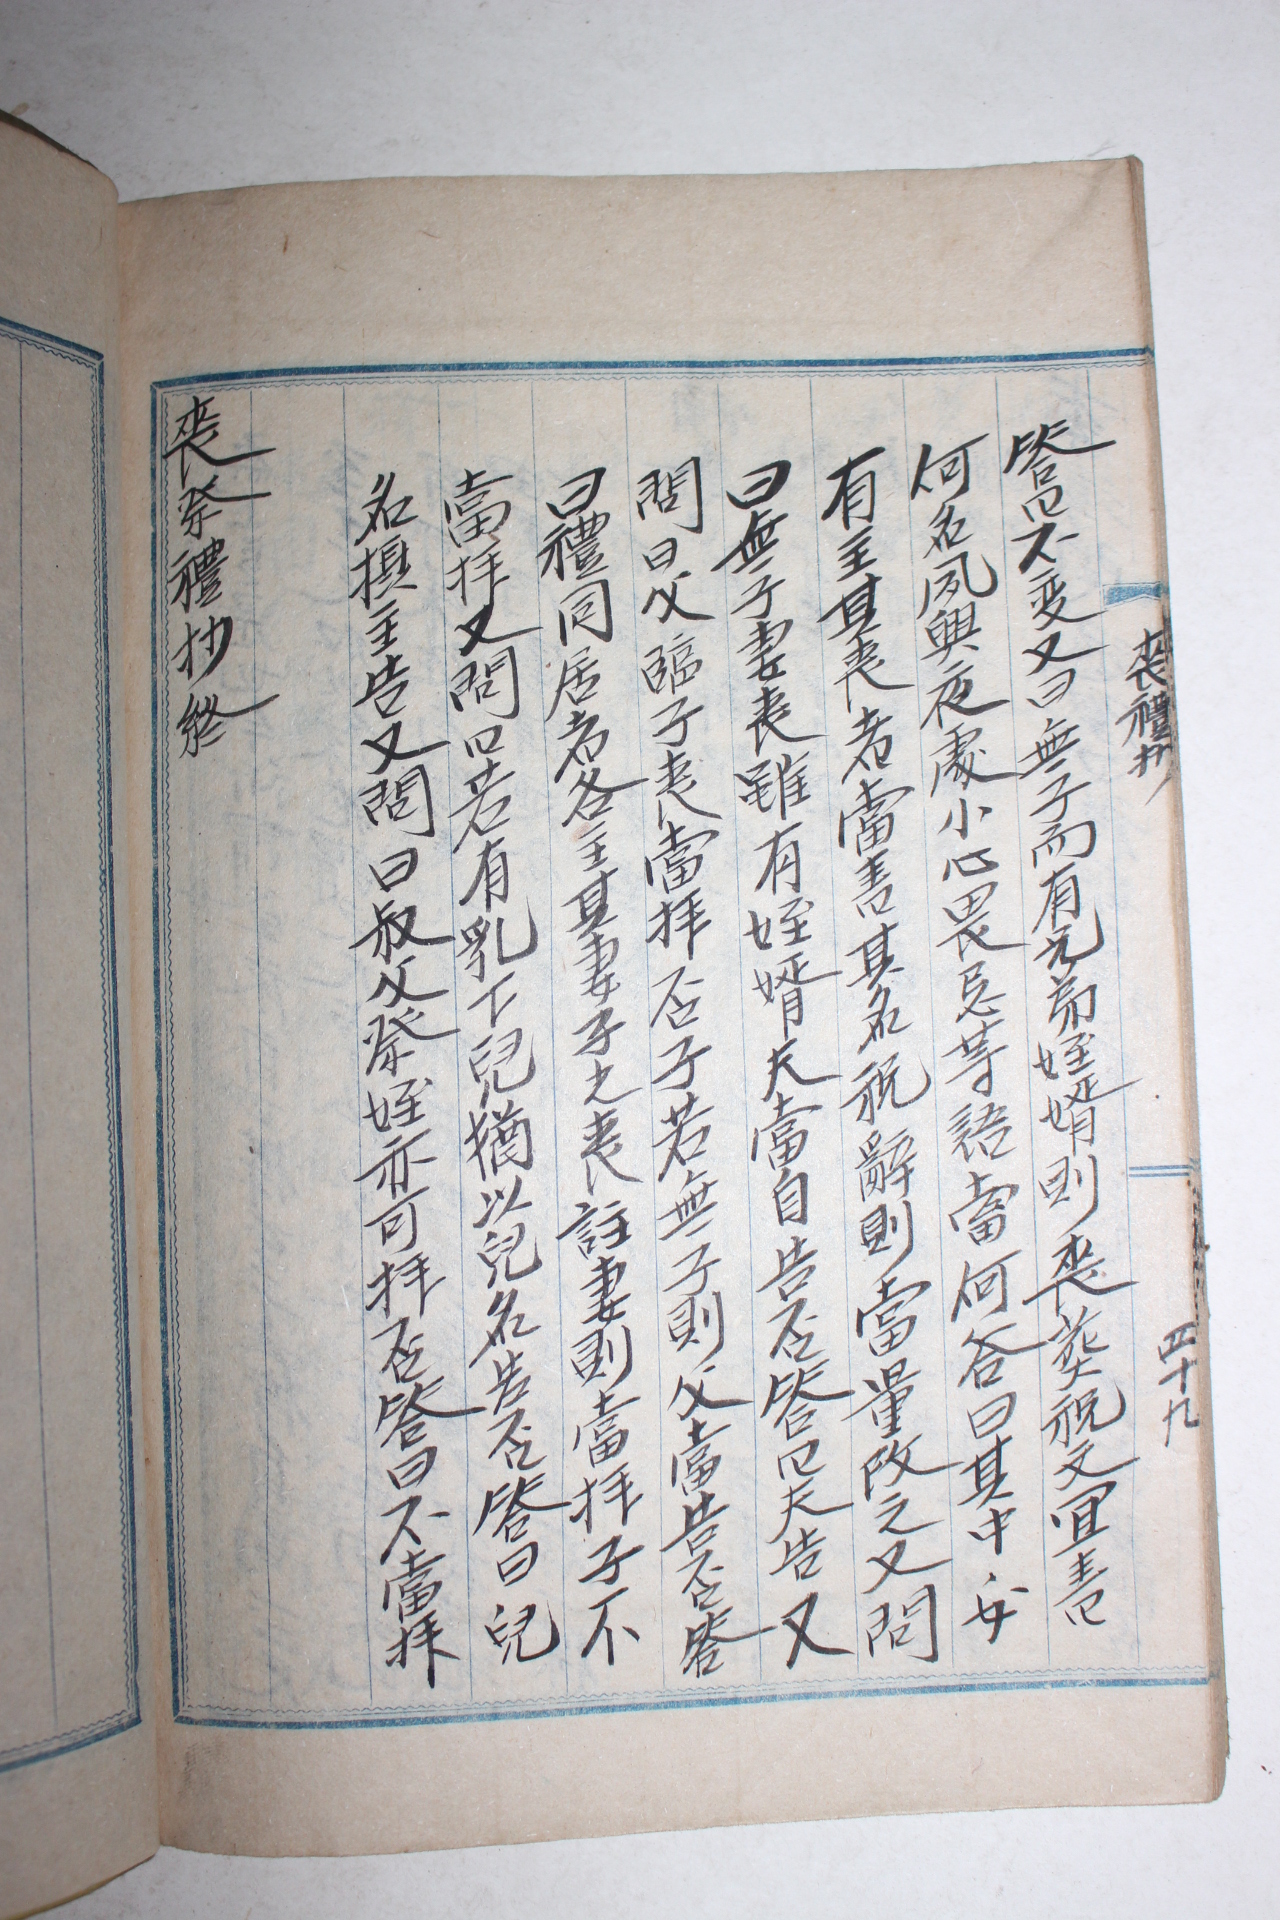 喪禮抄
四十九
答曰不変又曰無子而有兄弟姪婿則喪葬祝文宜書
何名夙興夜處小心畏忌等語當何答曰其中必
有主其喪者當書其名祝辭則當量改之又問
曰無子妻喪雖有姪婿夫當自告否答曰夫告又
問曰父臨子喪當拜否子若無子則父當告否答
曰禮同居者各主其妻子之喪註妻則當拜子不
當拜又問曰若有乳下兒猶以兒名告否答曰兒
名攝主告又問曰叔父祭姪亦可拜否答曰不當拜
喪祭禮抄終